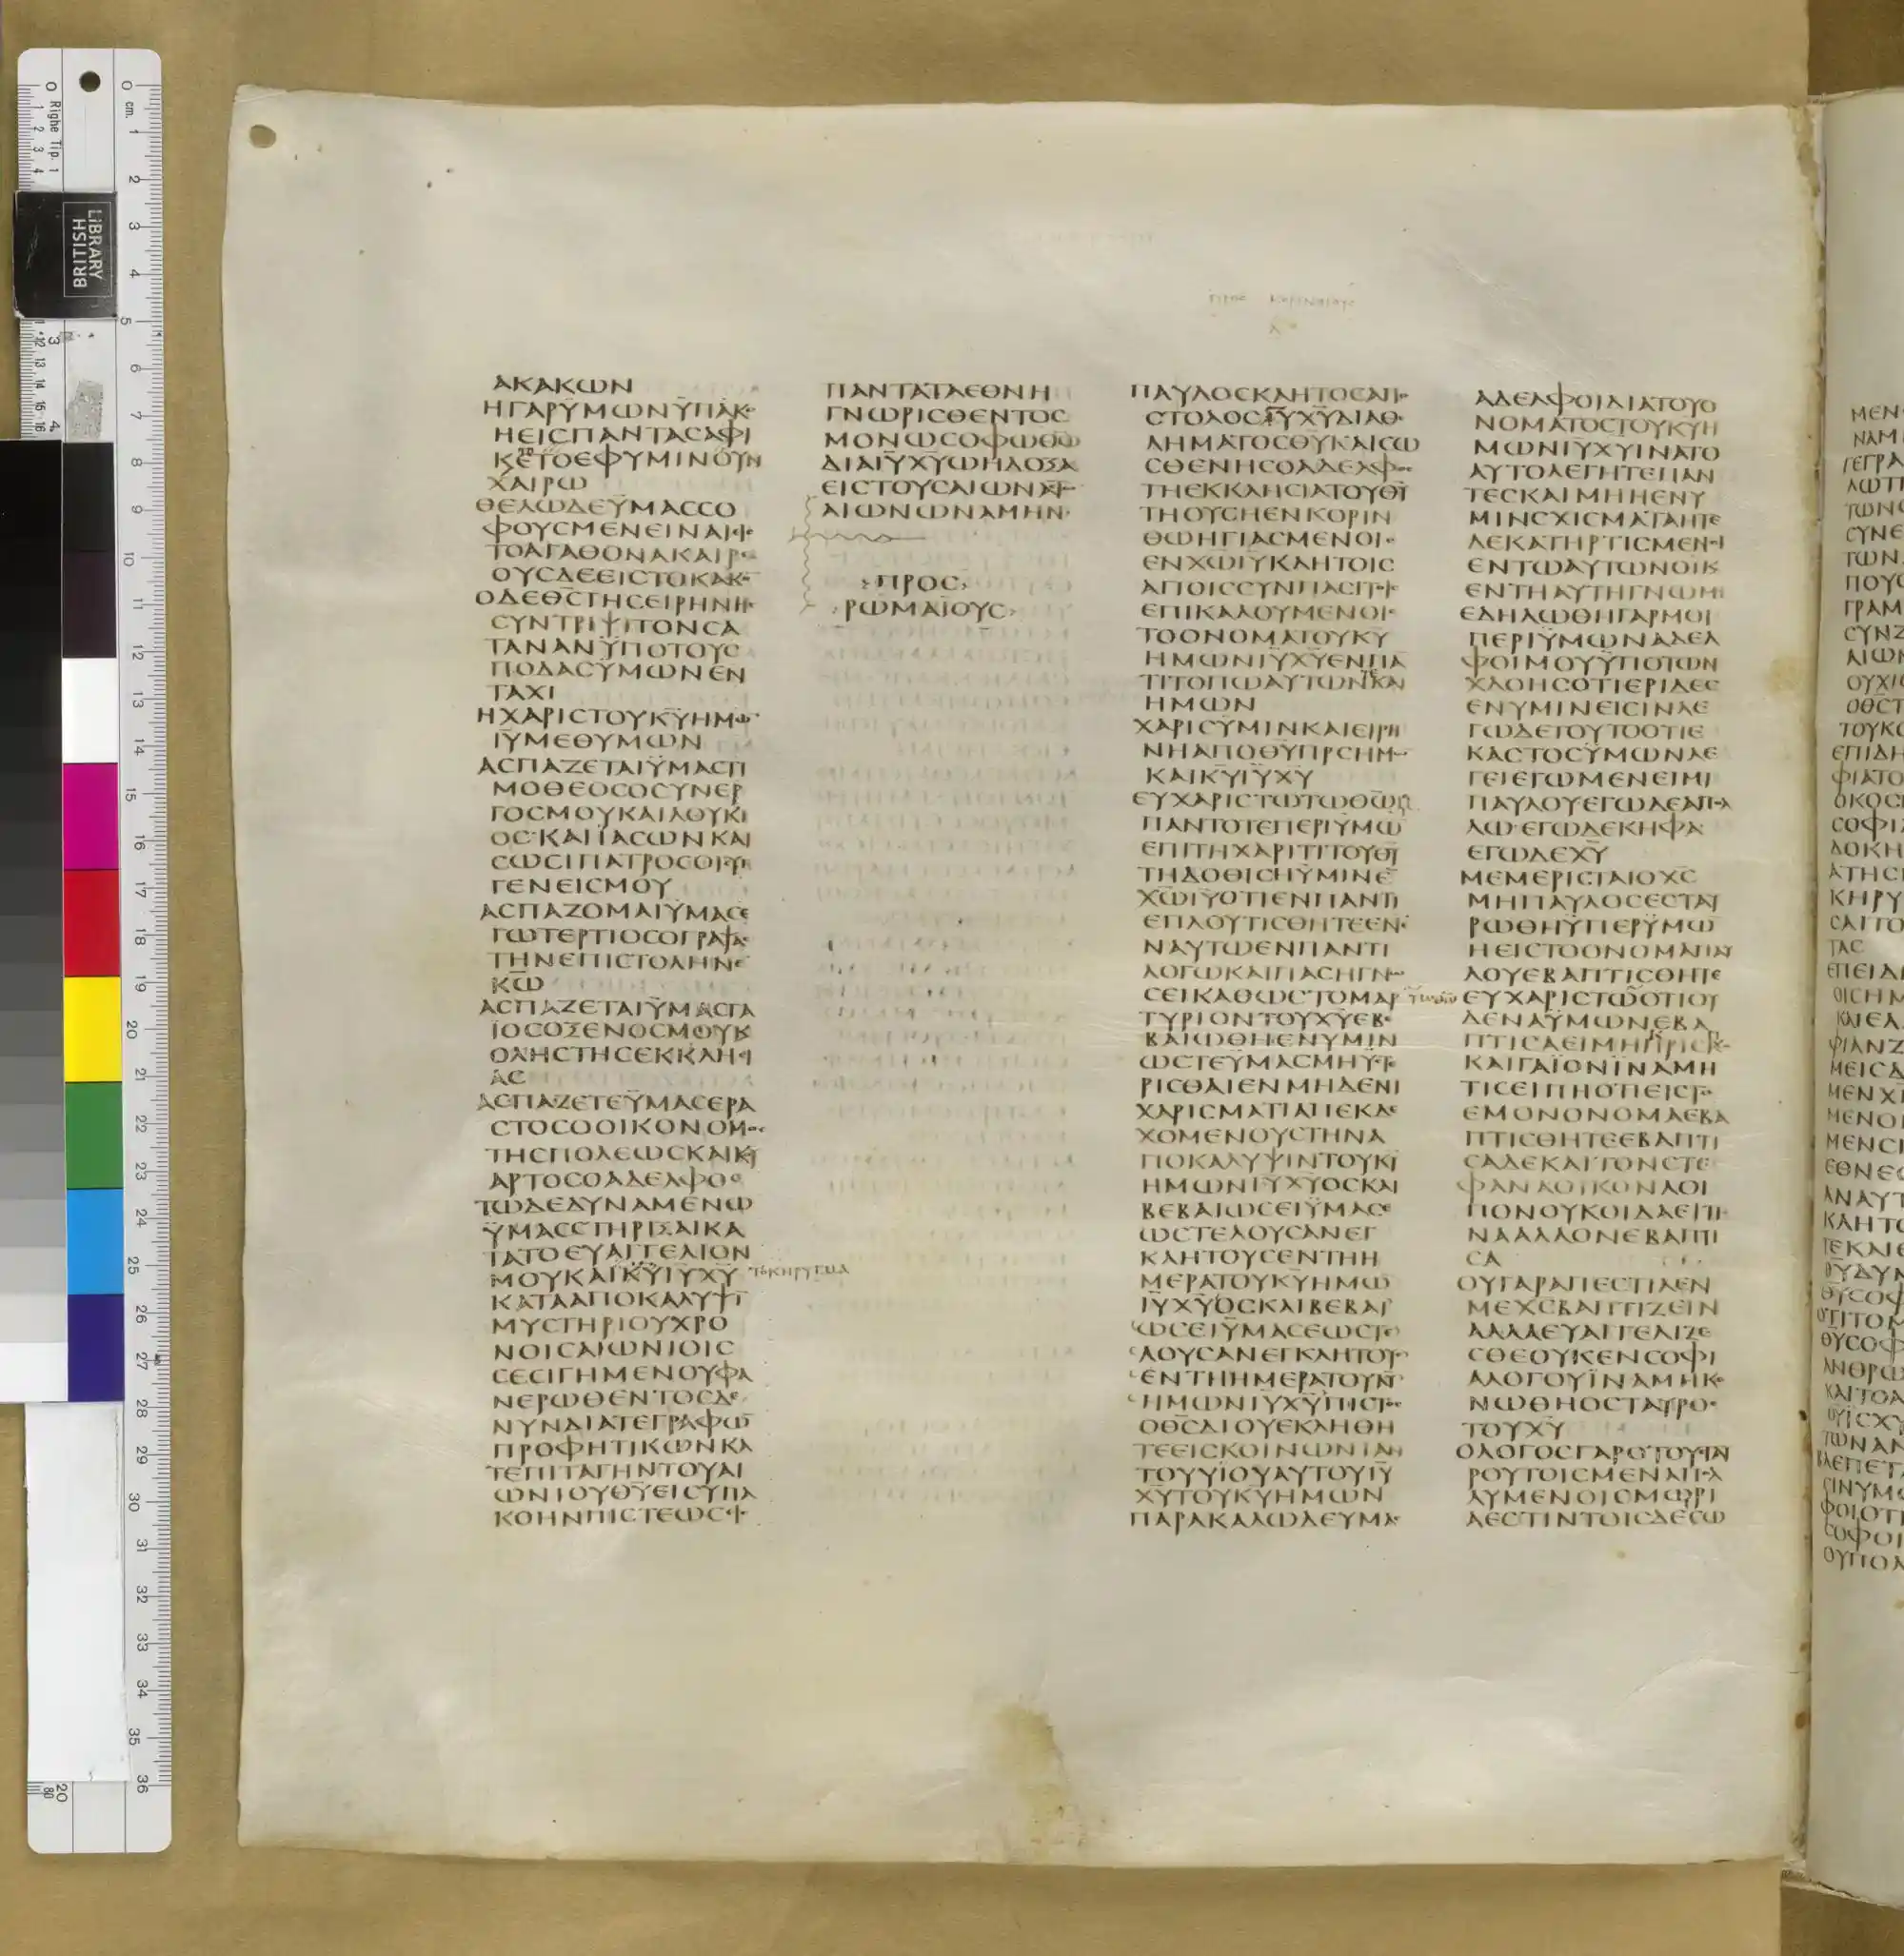 ΠΡΟΣ ΚΟΡΙΝΘΙΟΥΣ
Α
ΑΚΑΚΩΝ
ΗΓΑΡΫΜΩΝΫΠΑΚ
ΗΕΙϹΠΑΝΤΑϹΑΦΙ
ΚΕΤΟΕΦΥΜΙΝΟΥΝ
ΧΑΙΡΩ
ΘΕΛΩΔΕΫΜΑϹϹΟ
ΦΟΥϹΜΕΝΕΙΝΑΙ
ΤΟΑΓΑΘΟΝΑΚΑΙΡ
ΟΥϹΔΕΕΙϹΤΟΚΑΚ
ΟΔΕΘ̅Ϲ̅ΤΗϹΕΙΡΗΝΗ
ϹΥΝΤΡΙΨΙΤΟΝϹΑ
ΤΑΝΑΝΫΠΟΤΟΥϹ
ΠΟΔΑϹΫΜΩΝΕΝ
ΤΑΧΙ
ΗΧΑΡΙϹΤΟΥΚ̅Υ̅ΗΜΩ
Ι̅Υ̅ΜΕΘΥΜΩΝ
ΑϹΠΑΖΕΤΑΙΫΜΑϹΤΙ
ΜΟΘΕΟϹΟϹΥΝΕΡ
ΓΟϹΜΟΥΚΑΙΛΟΥΚΙ
ΟϹΚΑΙΪΑϹΩΝΚΑΙ
ϹΩϹΙΠΑΤΡΟϹΟΙϹΥ
ΓΕΝΕΙϹΜΟΥ
ΑϹΠΑΖΟΜΑΙΫΜΑϹΕ
ΓΩΤΕΡΤΙΟϹΟΓΡΑΨΑ
ΤΗΝΕΠΙϹΤΟΛΗΝΕ
Κ̅Ω̅
ΑϹΠΑΖΕΤΑΙΫΜΑϹΓΑ
ΪΟϹΟΞΕΝΟϹΜΟΥΚ
ΟΛΗϹΤΗϹΕΚΚΛΗϹΙ
ΑϹ
ΑϹΠΑΖΕΤΕΫΜΑϹΕΡΑ
ϹΤΟϹΟΟΙΚΟΝΟΜΟϹ
ΤΗϹΠΟΛΕΩϹΚΑΙΚΥ
ΑΡΤΟϹΟΑΔΕΛΦΟϹ
ΤΩΔΕΔΥΝΑΜΕΝΩ
ΫΜΑϹϹΤΗΡΙΞΑΙΚΑ
ΤΑΤΟΕΥΑΓΓΕΛΙΟΝ
ΜΟΥΚΑΙΚ̅Υ̅Ι̅Υ̅Χ̅Υ̅ ΤΟΚΗΡΥΓΜΑ
ΚΑΤΑΑΠΟΚΑΛΥΨΙ̅
ΜΥϹΤΗΡΙΟΥΧΡΟ
ΝΟΙϹΑΙΩΝΙΟΙϹ
ϹΕϹΙΓΗΜΕΝΟΥΦΑ
ΝΕΡΩΘΕΝΤΟϹΔΕ
ΝΥΝΔΙΑΤΕΓΡΑΦΩ̅
ΠΡΟΦΗΤΙΚΩΝΚΑ
ΤΕΠΙΤΑΓΗΝΤΟΥΑΙ
ΩΝΙΟΥΘ̅Υ̅ΕΙϹΥΠΑ
ΚΟΗΝΠΙϹΤΕΩϹ
ΠΑΝΤΑΤΑΕΘΝΗ
ΓΝΩΡΙϹΘΕΝΤΟϹ
ΜΟΝΩϹΟΦΩΘ̅Ω̅
ΔΙΑΙ̅Υ̅Χ̅Υ̅ΩΗΔΟΞΑ
ΕΙϹΤΟΥϹΑΙΩΝΑϹ
ΑΙΩΝΩΝΑΜΗΝ
ΠΡΟϹ
ΡΩΜΑΙΟΥϹ
ΠΑΥΛΟϹΚΛΗΤΟϹΑΠΟ
ϹΤΟΛΟϹΙ̅Υ̅Χ̅Υ̅ΔΙΑΘΕ
ΛΗΜΑΤΟϹΘ̅Υ̅ΚΑΙϹΩ
ϹΘΕΝΗϹΟΑΔΕΛΦΟϹ
ΤΗΕΚΚΛΗϹΙΑΤΟΥΘ̅Υ̅
ΤΗΟΥϹΗΕΝΚΟΡΙΝ
ΘΩΗΓΙΑϹΜΕΝΟΙϹ
ΕΝΧ̅Ω̅Ι̅Υ̅ΚΛΗΤΟΙϹ
ΑΓΙΟΙϹϹΥΝΠΑϹΙΤΟΙ
ΕΠΙΚΑΛΟΥΜΕΝΟΙϹ
ΤΟΟΝΟΜΑΤΟΥΚ̅Υ̅
ΗΜΩΝΙ̅Υ̅Χ̅Υ̅ΕΝΠΑ
ΤΙΤΟΠΩΑΥΤΩΝΚΑΙ
ΗΜΩΝ
ΧΑΡΙϹΫΜΙΝΚΑΙΕΙΡΗ
ΝΗΑΠΟΘ̅Υ̅Π̅Ρ̅Ϲ̅ΗΜΩ
ΚΑΙΚ̅Υ̅Ι̅Υ̅Χ̅Υ̅
ΕΥΧΑΡΙϹΤΩΤΩΘ̅Ω̅
ΠΑΝΤΟΤΕΠΕΡΙΫΜΩ̅
ΕΠΙΤΗΧΑΡΙΤΙΤΟΥΘ̅Υ̅
ΤΗΔΟΘΙϹΗΫΜΙΝΕ̅
Χ̅Ω̅Ι̅Υ̅ΟΤΙΕΝΠΑΝΤΙ
ΕΠΛΟΥΤΙϹΘΗΤΕΕΝ
ΝΑΥΤΩΕΝΠΑΝΤΙ
ΛΟΓΩΚΑΙΠΑϹΗΓΝΩ
ϹΕΙΚΑΘΩϹΤΟΜΑΡ
ΤΥΡΙΟΝΤΟΥΧ̅Υ̅ΕΒΕ
ΒΑΙΩΘΗΕΝΥΜΙΝ
ΩϹΤΕΫΜΑϹΜΗΫϹΤΕ
ΡΙϹΘΑΙΕΝΜΗΔΕΝΙ
ΧΑΡΙϹΜΑΤΙΑΠΕΚΔΕ
ΧΟΜΕΝΟΥϹΤΗΝΑ
ΠΟΚΑΛΥΨΙΝΤΟΥΚ̅Υ̅
ΗΜΩΝΙ̅Υ̅Χ̅Υ̅ΟϹΚΑΙ
ΒΕΒΑΙΩϹΕΙΫΜΑϹΕ
ΩϹΤΕΛΟΥϹΑΝΕΓ
ΚΛΗΤΟΥϹΕΝΤΗΗ
ΜΕΡΑΤΟΥΚ̅Υ̅ΗΜΩ̅
Ι̅Υ̅Χ̅Υ̅ΟϹΚΑΙΒΕΒΑΙ
ΩϹΕΙΫΜΑϹΕΩϹΤΕ
ΛΟΥϹΑΝΕΓΚΛΗΤΟΥϹ
ΕΝΤΗΗΜΕΡΑΤΟΥΚ̅Υ̅
ΗΜΩΝΙ̅Υ̅Χ̅Υ̅ΠΙϹΤΟϹ
ΟΘ̅Ϲ̅ΔΙΟΥΕΚΛΗΘΗ
ΤΕΕΙϹΚΟΙΝΩΝΙΑΝ
ΤΟΥΥΪΟΥΑΥΤΟΥΙ̅Υ̅
Χ̅Υ̅ΤΟΥΚ̅Υ̅ΗΜΩΝ
ΠΑΡΑΚΑΛΩΔΕΥΜΑϹ
ΑΔΕΛΦΟΙΔΙΑΤΟΥΟ
ΝΟΜΑΤΟϹΤΟΥΚΥΗ
ΜΩΝΙ̅Υ̅Χ̅Υ̅ΙΝΑΤΟ
ΑΥΤΟΛΕΓΗΤΕΠΑΝ
ΤΕϹΚΑΙΜΗΗΕΝΥ
ΜΙΝϹΧΙϹΜΑΤΑΗΤΕ
ΔΕΚΑΤΗΡΤΙϹΜΕΝΟΙ
ΕΝΤΩΑΥΤΩΝΟΙΚ
ΕΝΤΗΑΥΤΗΓΝΩΜΗ
ΕΔΗΛΩΘΗΓΑΡΜΟΙ
ΠΕΡΙΫΜΩΝΑΔΕΛ
ΦΟΙΜΟΥΫΠΟΤΩΝ
ΧΛΟΗϹΟΤΙΕΡΙΔΕϹ
ΕΝΥΜΙΝΕΙϹΙΝΛΕ
ΓΩΔΕΤΟΥΤΟΟΤΙΕ
ΚΑϹΤΟϹΫΜΩΝΛΕ
ΓΕΙΕΓΩΜΕΝΕΙΜΙ
ΠΑΥΛΟΥΕΓΩΔΕΑΠΟΛ
ΛΩΕΓΩΔΕΚΗΦΑ
ΕΓΩΔΕΧ̅Υ̅
ΜΕΜΕΡΙϹΤΑΙΟΧ̅Ϲ̅
ΜΗΠΑΥΛΟϹΕϹΤΑΥ
ΡΩΘΗΫΠΕΡΫΜΩ̅
ΗΕΙϹΤΟΟΝΟΜΑΠΑΥ
ΛΟΥΕΒΑΠΤΙϹΘΗΤΕ
ΕΥΧΑΡΙϹΤΩΟΤΙΟΥ
ΔΕΝΑΫΜΩΝΕΒΑ
ΠΤΙϹΑΕΙΜΗΚΡΙϹΠΟ
ΚΑΙΓΑΪΟΝΪΝΑΜΗ
ΤΙϹΕΙΠΗΟΤΙΕΙϹΤΟ
ΕΜΟΝΟΝΟΜΑΕΒΑ
ΠΤΙϹΘΗΤΕΕΒΑΠΤΙ
ϹΑΔΕΚΑΙΤΟΝϹΤΕ
ΦΑΝΑΟΙΚΟΝΛΟΙ
ΠΟΝΟΥΚΟΙΔΑΕΙΤΙ
ΝΑΑΛΛΟΝΕΒΑΠΤΙ
ϹΑ
ΟΥΓΑΡΑΠΕϹΤΙΛΕΝ
ΜΕΧ̅Ϲ̅ΒΑΠΤΙΖΕΙΝ
ΑΛΛΑΕΥΑΓΓΕΛΙΖΕ
ϹΘΕΟΥΚΕΝϹΟΦΙ
ΑΛΟΓΟΥΪΝΑΜΗΚΕ
ΝΩΘΗΟϹΤΑΥΡΟϹ
ΤΟΥΧ̅Υ̅
ΟΛΟΓΟϹΓΑΡΟΤΟΥϹΤΑΥ
ΡΟΥΤΟΙϹΜΕΝΑΠΟΛ
ΛΥΜΕΝΟΙϹΜΩΡΙ
ΑΕϹΤΙΝΤΟΙϹΔΕϹΩ